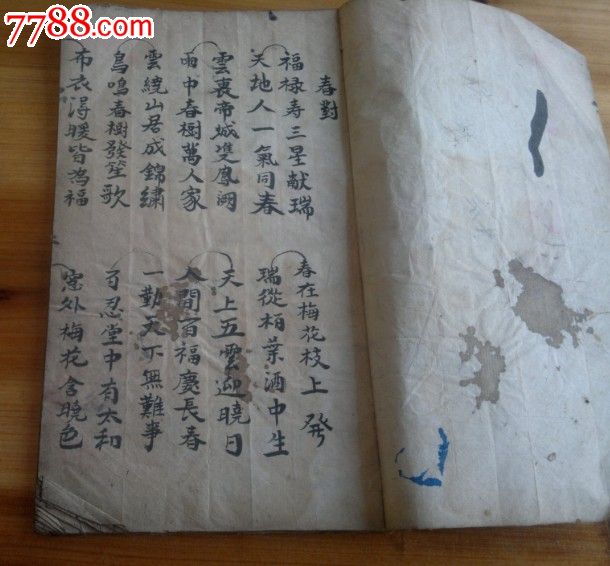 7788.com
春對
福禄寿三星献瑞
天地人一氣同春
雲裏帝城雙鳳闕
雨中春樹萬人家
雲繞山君成錦繡
鳥鳴春樹發笙歌
布衣得暖皆為福
春在梅花枝上發
瑞從柏葉酒中生
天上五雲迎曉日
人間百福慶長春
一勤天下無難事
百忍堂中有太和
窓外梅花含晚色